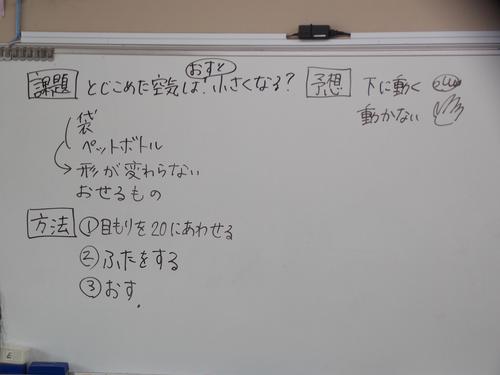 課題 とじこめた空気は、おすと小さくなる？
袋
ペットボトル
形が変わらない
おせるもの
方法 ①目もりを20にあわせる
②ふたをする
③おす.
予想 下に動く
動かない
E